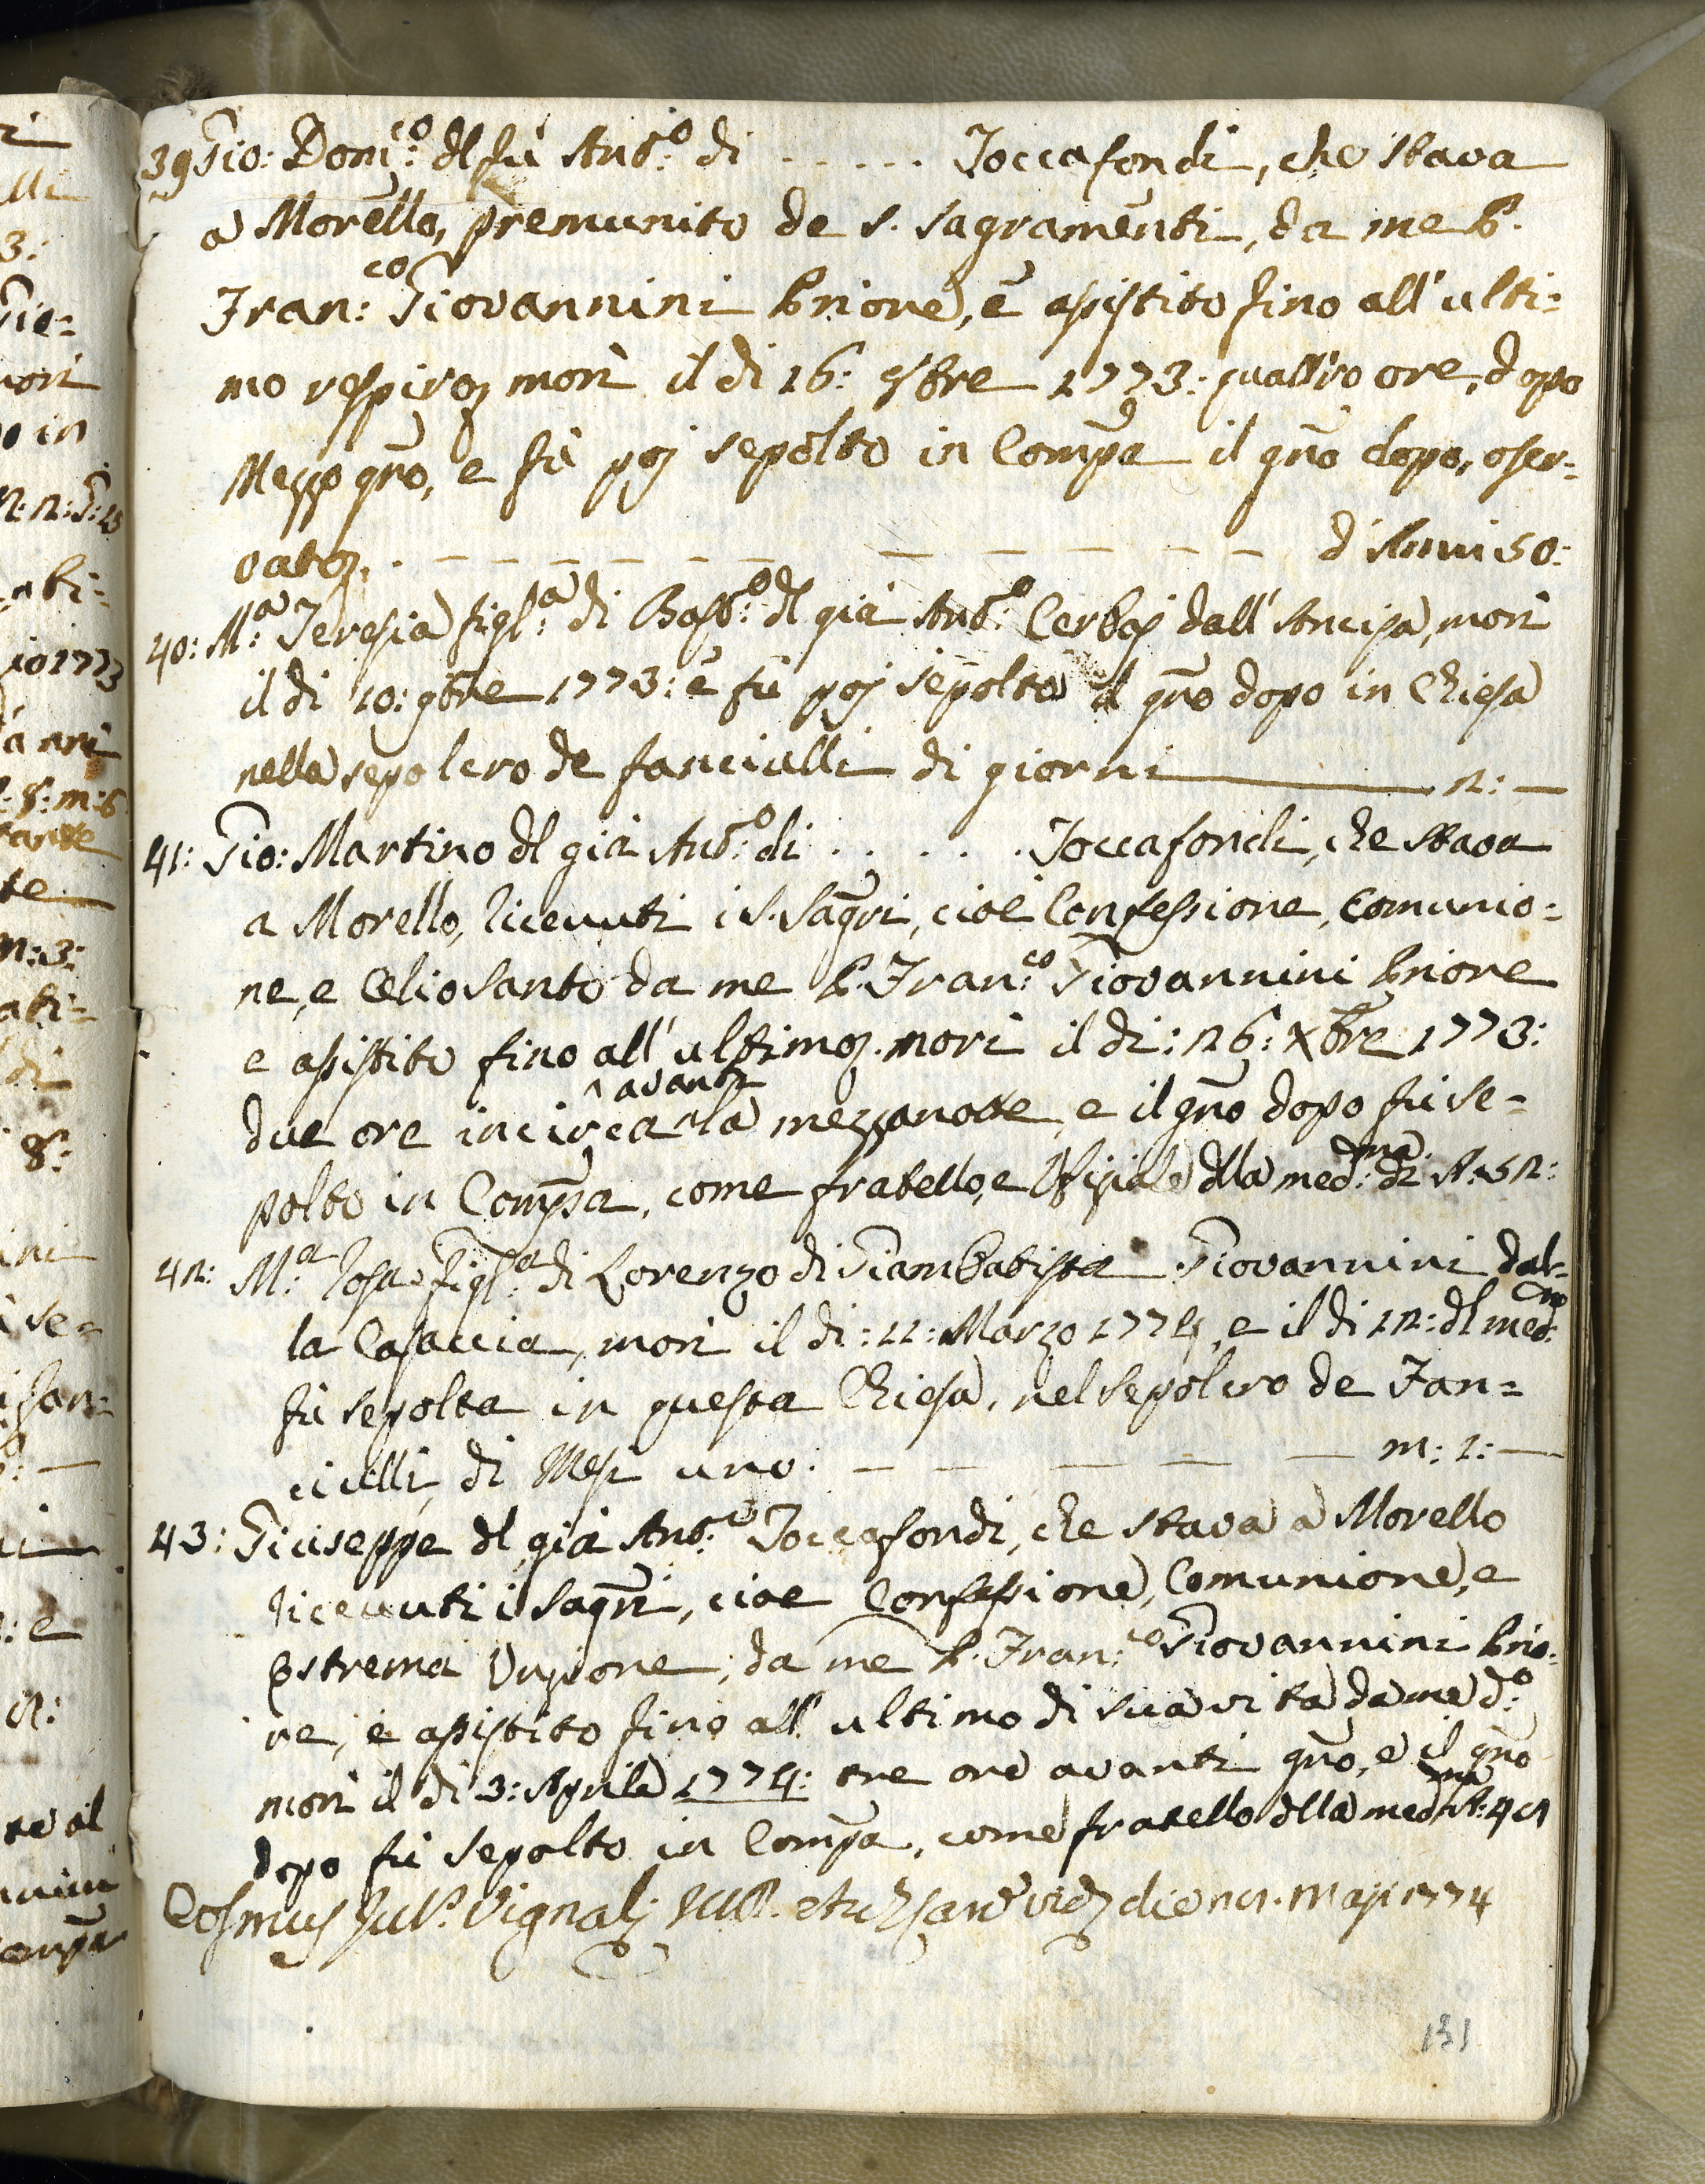 39 Gio: Dom:co dl fù Ant:o di . . . . . . Toccafondi, che stava
a Morello, premunito de s. sagramenti, da me P.
Fran:co Giovannini Priore, e assistito fino all' ulti=
mo respiro, morì il dì 16: 9bre 1773: quattro ore, dopo
Mezzo gno, e fù poi sepolto in Compa il gno dopo, oser=
vato, . — — — — — — — — — — — d'Anni 50:
40: M:a Teresia figl:a di Bast:o dl già Ant:o Cerbai dall' Ancisa, morì
il di 10: 9bre 1773: e fù poi sepolto il gno dopo in Chiesa
nella sepolcro de fanciulli di giorni — 2: —
41: Gio: Martino dl già Ant:o di . . . . . Toccafondi, che stava
a Morello, ricevuti i S. Sagri, cioè Confessione, Comunio=
ne, e Olio Santo da me P. Fran:co Giovannini Priore
e assistito fino all' ultimo, morì il di: 26: Xbre 1773:
due ore incirca ^ avanti la mezzanotte, e il gno dopo fù se=
polto in Compa, come fratello, e Ufiziale dlla med:ma di A: 52:
42: M:a Rosa figl:a di Lorenzo di Giambatista Giovannini dal=
la Casaccia, morì il di: 11: Marzo 1774, e il di 12: dl med:mo
fù sepolta in questa Chiesa, nel sepolcro de Fan=
ciulli, di Mesi uno. — — — — — m: 1: —
43: Giuseppe dl già Ant:o Toccafondi, che stava a Morello
ricevuti i Sagri, cioe Confessione, Comunione, e
Estrema Unzione, da me P. Fran:co Giovannini Prio=
re, e assistito fino all' ultimo di sua vita da me d:o
morì il di 3: Aprile 1774: tre ore avanti gno, e il gno
dopo fù sepolto in Compa, come fratello dlla med:ma A: 42
Cosmus Vignali die 22. Maji 1774
131